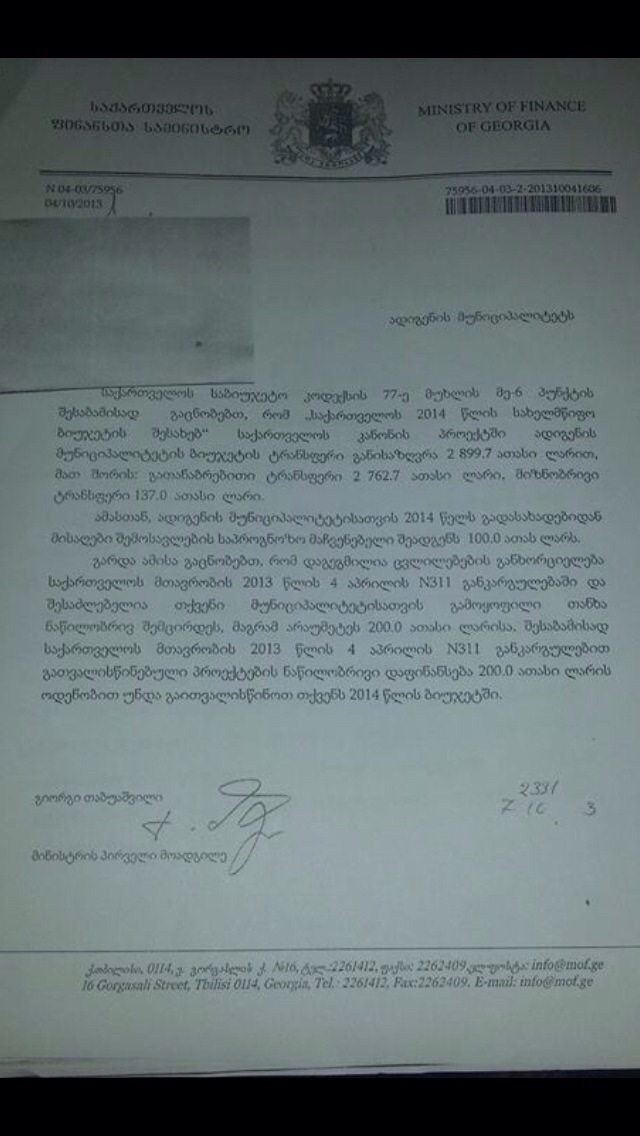 საქართველოს
ფინანსთა სამინისტრო
MINISTRY OF FINANCE
OF GEORGIA
N 04-03/75956
04/10/2013
75956-04-03-2-201310041606
ადიგენის მუნიციპალიტეტს
საქართველოს საბიუჯეტო კოდექსის 77-ე მუხლის მე-6 პუნქტის
შესაბამისად გაცნობებთ, რომ „საქართველოს 2014 წლის სახელმწიფო
ბიუჯეტის შესახებ“ საქართველოს კანონის პროექტში ადიგენის
მუნიციპალიტეტის ბიუჯეტის ტრანსფერი განისაზღვრა 2 899.7 ათასი ლარით,
მათ შორის: გათანაბრებითი ტრანსფერი 2 762.7 ათასი ლარი, მიზნობრივი
ტრანსფერი 137.0 ათასი ლარი.
ამასთან, ადიგენის მუნიციპალიტეტისათვის 2014 წელს გადასახადებიდან
მისაღები შემოსავლების საპროგნოზო მაჩვენებელი შეადგენს 100.0 ათას ლარს.
გარდა ამისა გაცნობებთ, რომ დაგეგმილია ცვლილებების განხორციელება
საქართველოს მთავრობის 2013 წლის 4 აპრილის N311 განკარგულებაში და
შესაძლებელია თქვენი მუნიციპალიტეტისათვის გამოყოფილი თანხა
ნაწილობრივ შემცირდეს, მაგრამ არაუმეტეს 200.0 ათასი ლარისა. შესაბამისად
საქართველოს მთავრობის 2013 წლის 4 აპრილის N311 განკარგულებით
გათვალისწინებული პროექტების ნაწილობრივი დაფინანსება 200.0 ათასი ლარის
ოდენობით უნდა გაითვალისწინოთ თქვენს 2014 წლის ბიუჯეტში.
გიორგი თაბუაშვილი
მინისტრის პირველი მოადგილე
ქ.თბილისი, 0114, ვ. გორგასლის ქ. №16, ტელ.:2261412, ფაქსი: 2262409, ელფოსტა: info@mof.ge
16 Gorgasali Street, Tbilisi 0114, Georgia, Tel.: 2261412, Fax:2262409, E-mail: info@mof.ge